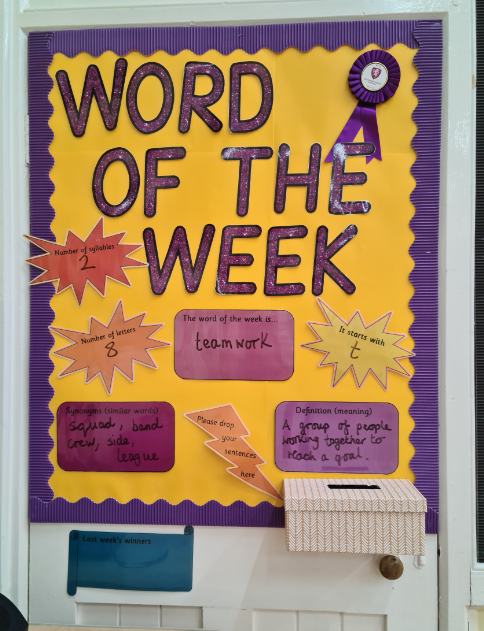 WORD
OF THE
WEEK
Number of syllables
2
Number of letters
8
The word of the week is...
teamwork
It starts with
t
Synonyms (similar words)
squad, band
crew, side,
league
Please drop
your
sentences
here
Definition (meaning)
A group of people
working together to
reach a goal.
Last week's winners